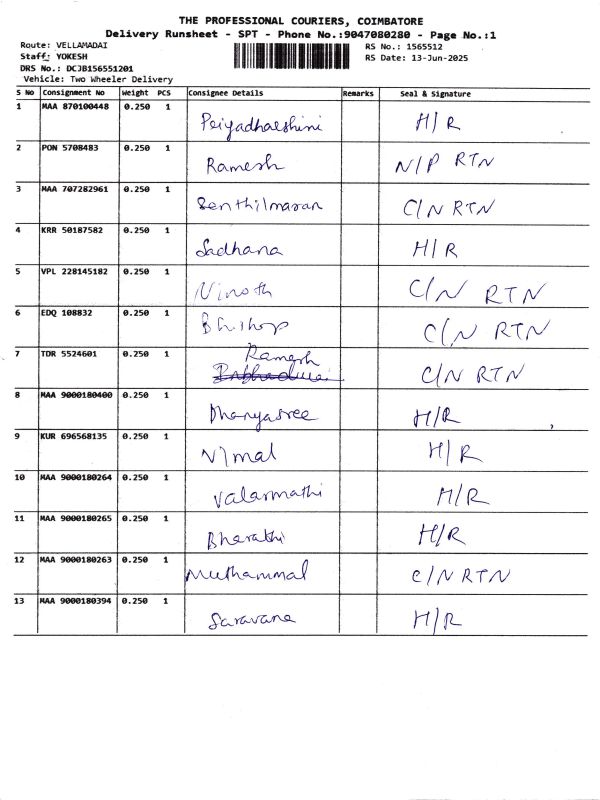 THE PROFESSIONAL COURIERS, COIMBATORE
Delivery Runsheet - SPT - Phone No.:9047080280 - Page No.:1
Route: VELLAMADAI RS No.: 1565512
Staff: YOKESH RS Date: 13-Jun-2025
DRS No.: DCJB156551201
Vehicle: Two Wheeler Delivery
S No Consignment No Weight PCS Consignee Details Remarks Seal & Signature
1 MAA 870100448 0.250 1 Priyadharshini H/R
2 PON 5708483 0.250 1 Ramesh N/P RTN
3 MAA 707282961 0.250 1 Senthilmaran C/N RTN
4 KRR 50187582 0.250 1 Sadhana H/R
5 VPL 228145182 0.250 1 Vinoth C/N RTN
6 EDQ 108832 0.250 1 Bhishop C/N RTN
7 TDR 5524601 0.250 1 Ramesh C/N RTN
8 MAA 9000180400 0.250 1 Dhanyasree H/R
9 KUR 696568135 0.250 1 Vimal H/R
10 MAA 9000180264 0.250 1 Valarmathi H/R
11 MAA 9000180265 0.250 1 Bharathi H/R
12 MAA 9000180263 0.250 1 Muthammal C/N RTN
13 MAA 9000180394 0.250 1 Saravana H/R